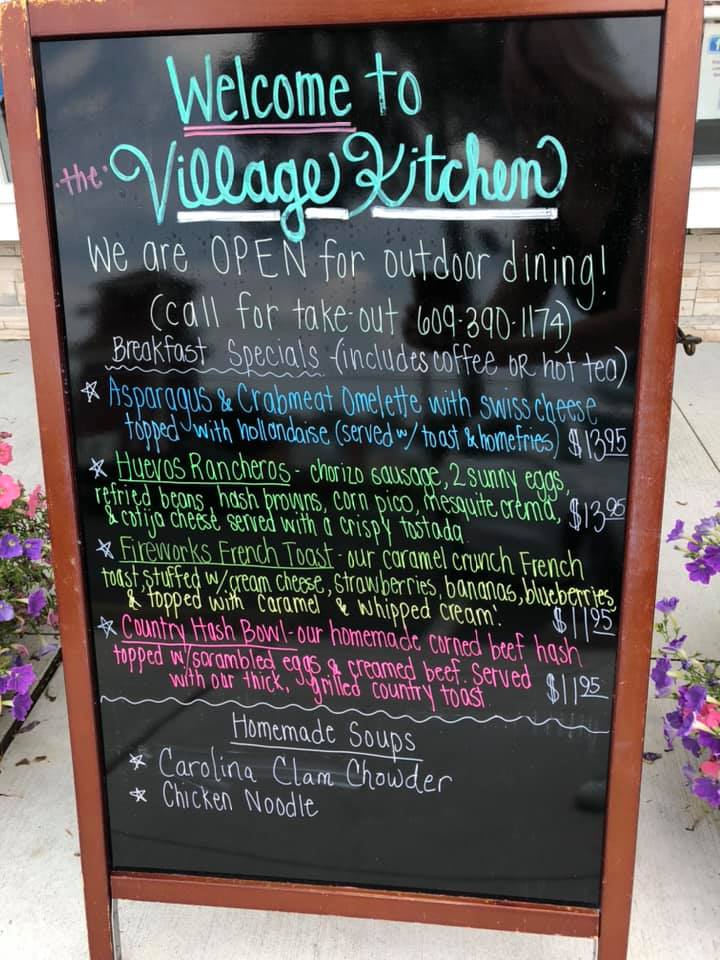 Welcome to
the Village Kitchen
We are OPEN for outdoor dining!
(call for take out 609-390-1174)
Breakfast Specials (includes coffee OR hot tea)
☆ Asparagus & Crabmeat Omelette with swiss cheese
topped with hollandaise (served w/ toast & homefries) $13.95
☆ Huevos Rancheros - chorizo sausage, 2 sunny eggs,
refried beans, hash browns, corn pico, mesquite crema,
& cotija cheese served with a crispy tostada. $13.95
☆ Fireworks French Toast - our caramel crunch French
toast stuffed w/ cream cheese, strawberries, bananas, blueberries
& topped with caramel & whipped cream. $11.95
☆ Country Hash Bowl - our homemade corned beef hash
topped w/ scrambled eggs & creamed beef. Served
with our thick, grilled country toast. $11.95
Homemade Soups
☆ Carolina Clam Chowder
☆ Chicken Noodle